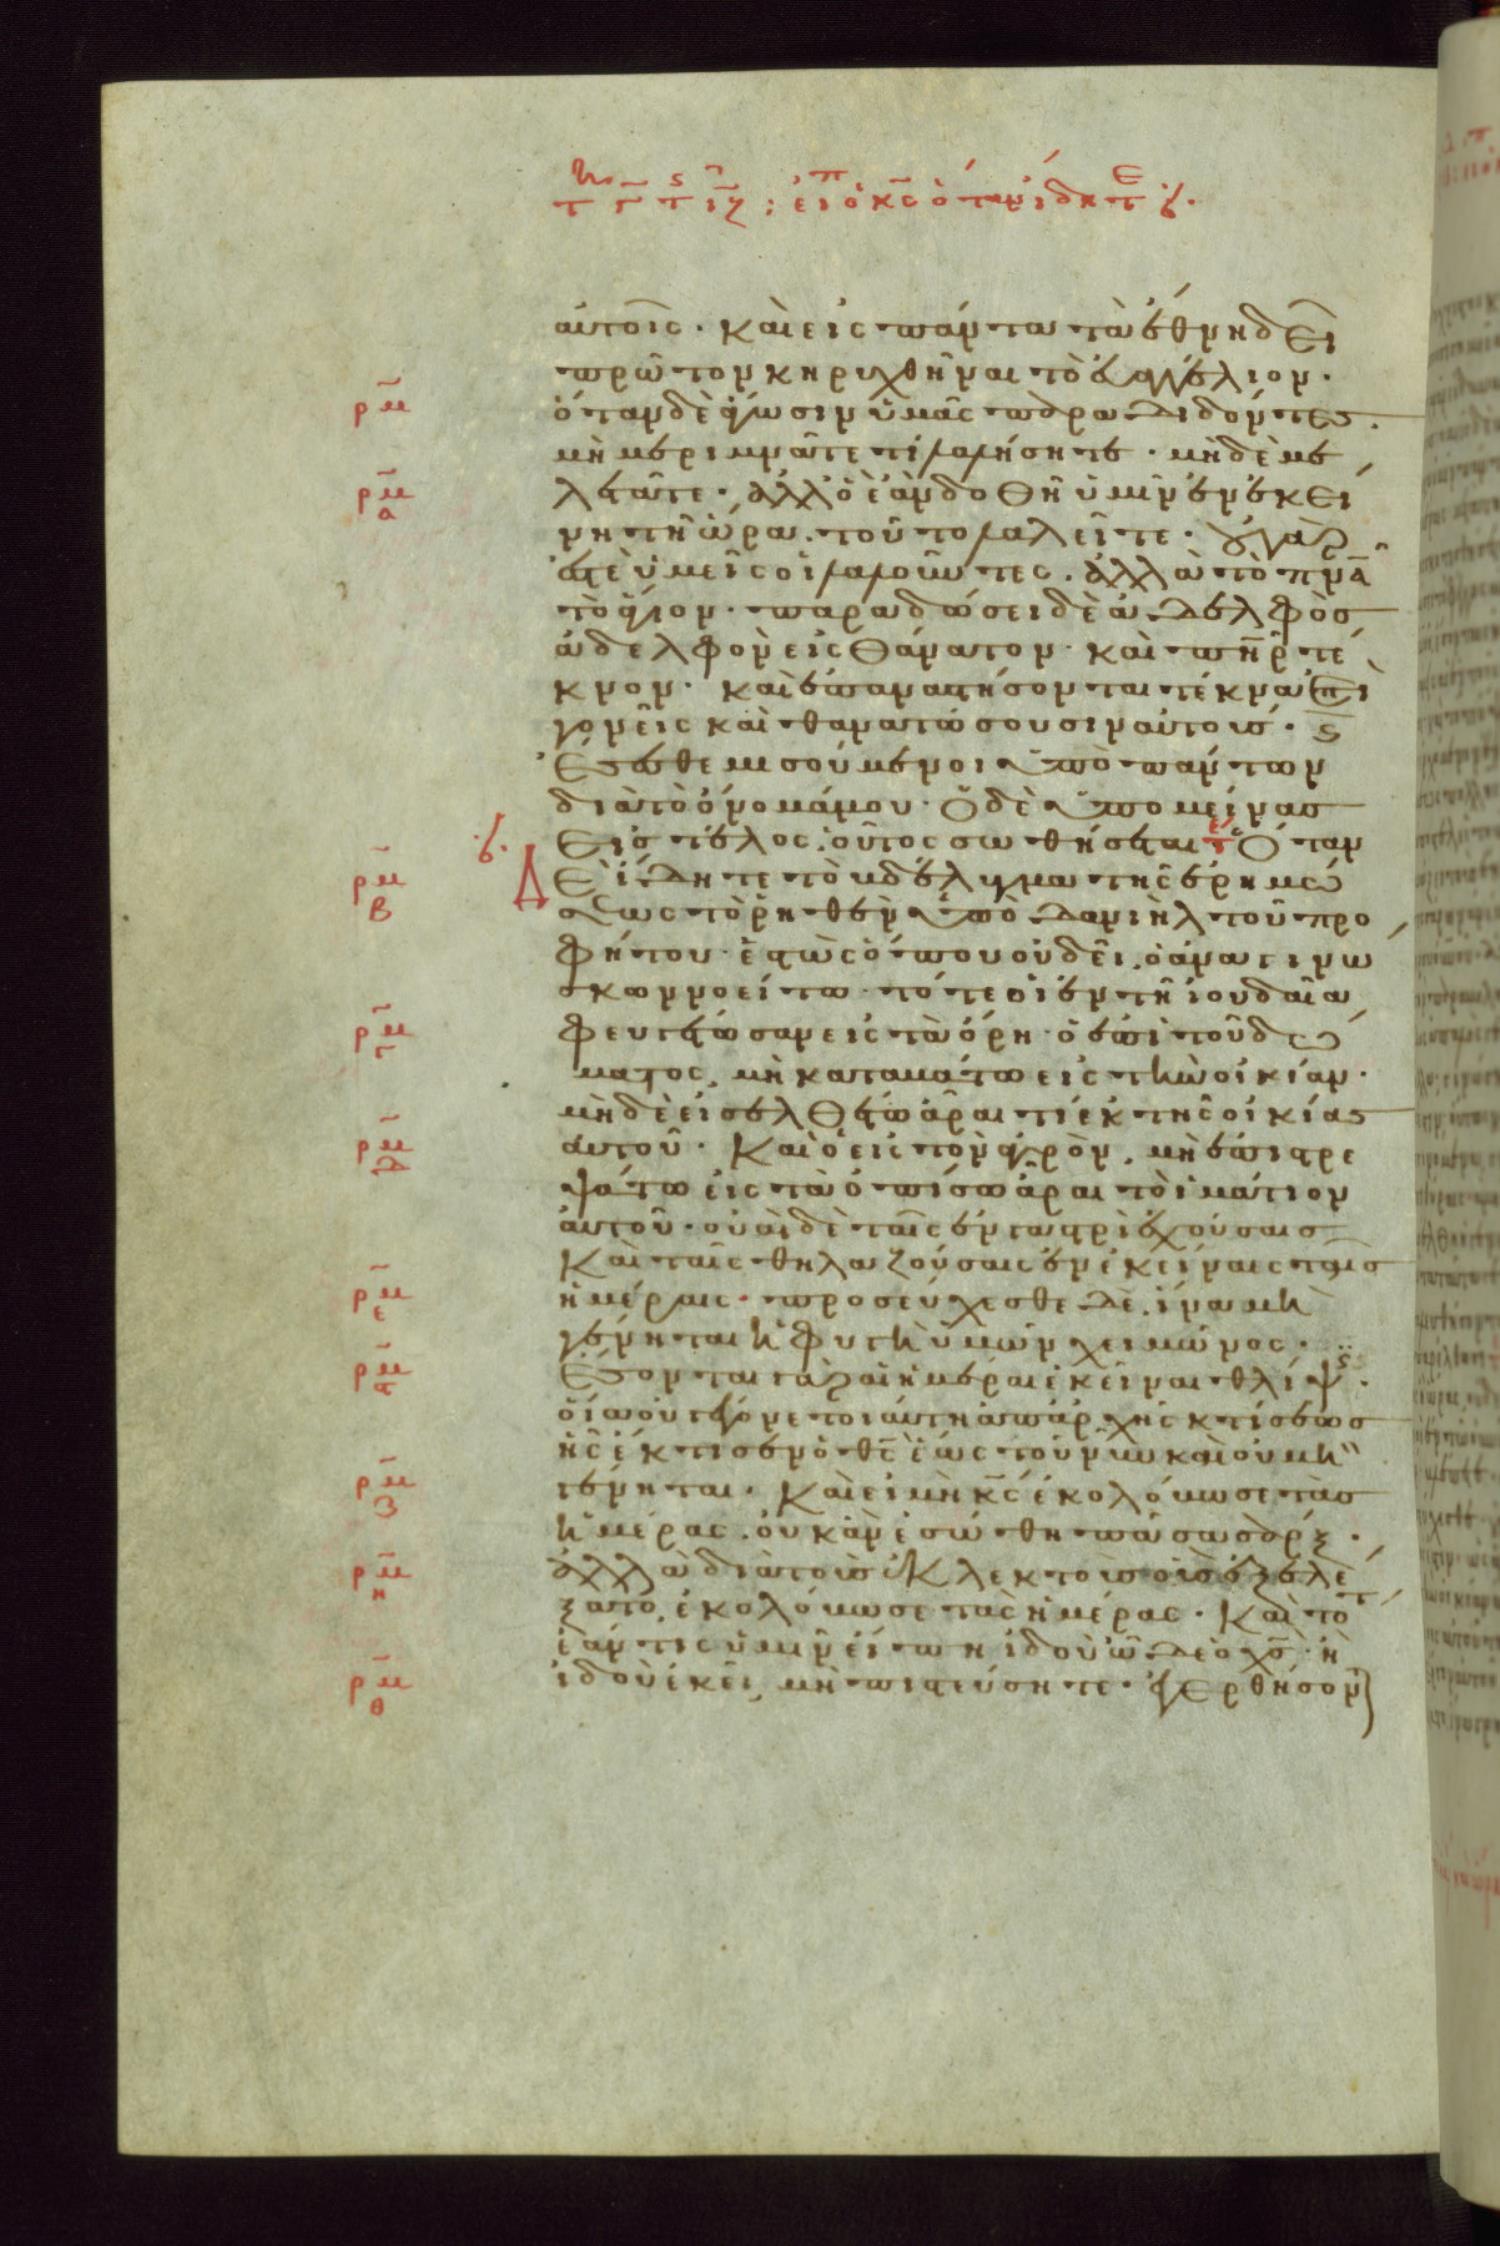 αὐτοῖς · καὶ εἰς πάντα τὰ ἔθνη δεῖ
πρῶτον κηρυχθῆναι τὸ εὐαγγέλιον ·
ρμ ὅταν δὲ ἄγωσιν ὑμᾶς παραδιδόντες ·
μὴ μεριμνᾶτε τί λαλήσητε · μηδὲ με
ρμα λετᾶτε · ἀλλ' ὃ ἐὰν δοθῇ ὑμῖν ἐν ἐκεί
νη τῇ ὥρα · τοῦτο λαλεῖτε · οὐ γάρ
ἐστὲ ὑμεῖς οἱ λαλοῦντες · ἀλλὰ τὸ πνᾶ
τὸ ἅγιον · παραδώσει δὲ ἀδελφὸς
ἀδελφὸν εἰς θάνατον · καὶ πηρ τέ
κνον · καὶ ἐπαναστήσονται τέκνα ἐπὶ
γονεῖς καὶ θανατώσουσιν αὐτούς · ϛ
ἔσεσθε μισούμενοι ὑπὸ πάντων
διὰ τὸ ὄνομά μου · ὁ δὲ ὑπομείνας
εἰς τέλος, οὗτος σωθήσεται · Ὅταν
ρμβ δὲ ἴδητε τὸ βδέλυγμα τῆς ἐρημώ
σεως τὸ ῥηθὲν ὑπὸ δανιὴλ τοῦ προ
φήτου · ἑστὼς ὅπου οὐ δεῖ, ὁ ἀναγινώ
σκων νοείτω · τότε οἱ ἐν τῇ ἰουδαία
ρμγ φευγέτωσαν εἰς τὰ ὄρη · ὁ ἐπὶ τοῦ δώ
ματος, μὴ καταβάτω εἰς τὴν οἰκίαν ·
μηδὲ εἰσελθέτω ἆραι τι ἐκ τῆς οἰκίας
ρμδ αὐτοῦ · Καὶ ὁ εἰς τὸν ἀγρὸν, μὴ ἐπιστρε
ψάτω εἰς τὰ ὀπίσω ἆραι τὸ ἱμάτιον
αὐτοῦ · οὐαὶ δὲ ταῖς ἐν γαστρὶ ἐχούσαις
Καὶ ταῖς θηλαζούσαις ἐν ἐκείναις ταῖς
ρμε ἡμέραις · προσεύχεσθε δὲ, ἵνα μὴ
γένηται ἡ φυγὴ ὑμῶν χειμῶνος ·
ρμϛ ἔσονται γὰρ αἱ ἡμέραι ἐκεῖναι θλίψ ·
οἵα οὐ γέγονε τοιαύτη ἀπ' ἀρχῆς κτίσεως
ἧς ἔκτισεν ὁ θς ἕως τοῦ νῦν καὶ οὐ μὴ
ρμζ γένηται · Καὶ εἰ μὴ κς ἐκολόβωσε τὰς
ἡμέρας · οὐκ ἂν ἐσώθη πᾶσα σάρξ ·
ρμη ἀλλὰ διὰ τοὺς ἐκλεκτοὺς οὓς ἐξελέ
ξατο, ἐκολόβωσε τὰς ἡμέρας · Καὶ τότ
ἐάν τις ὑμῖν εἴπη ἰδοὺ ὧδε ὁ χς · ἢ
ρμθ ἰδοὺ ἐκεῖ, μὴ πιστεύσητε · ἐγερθήσον